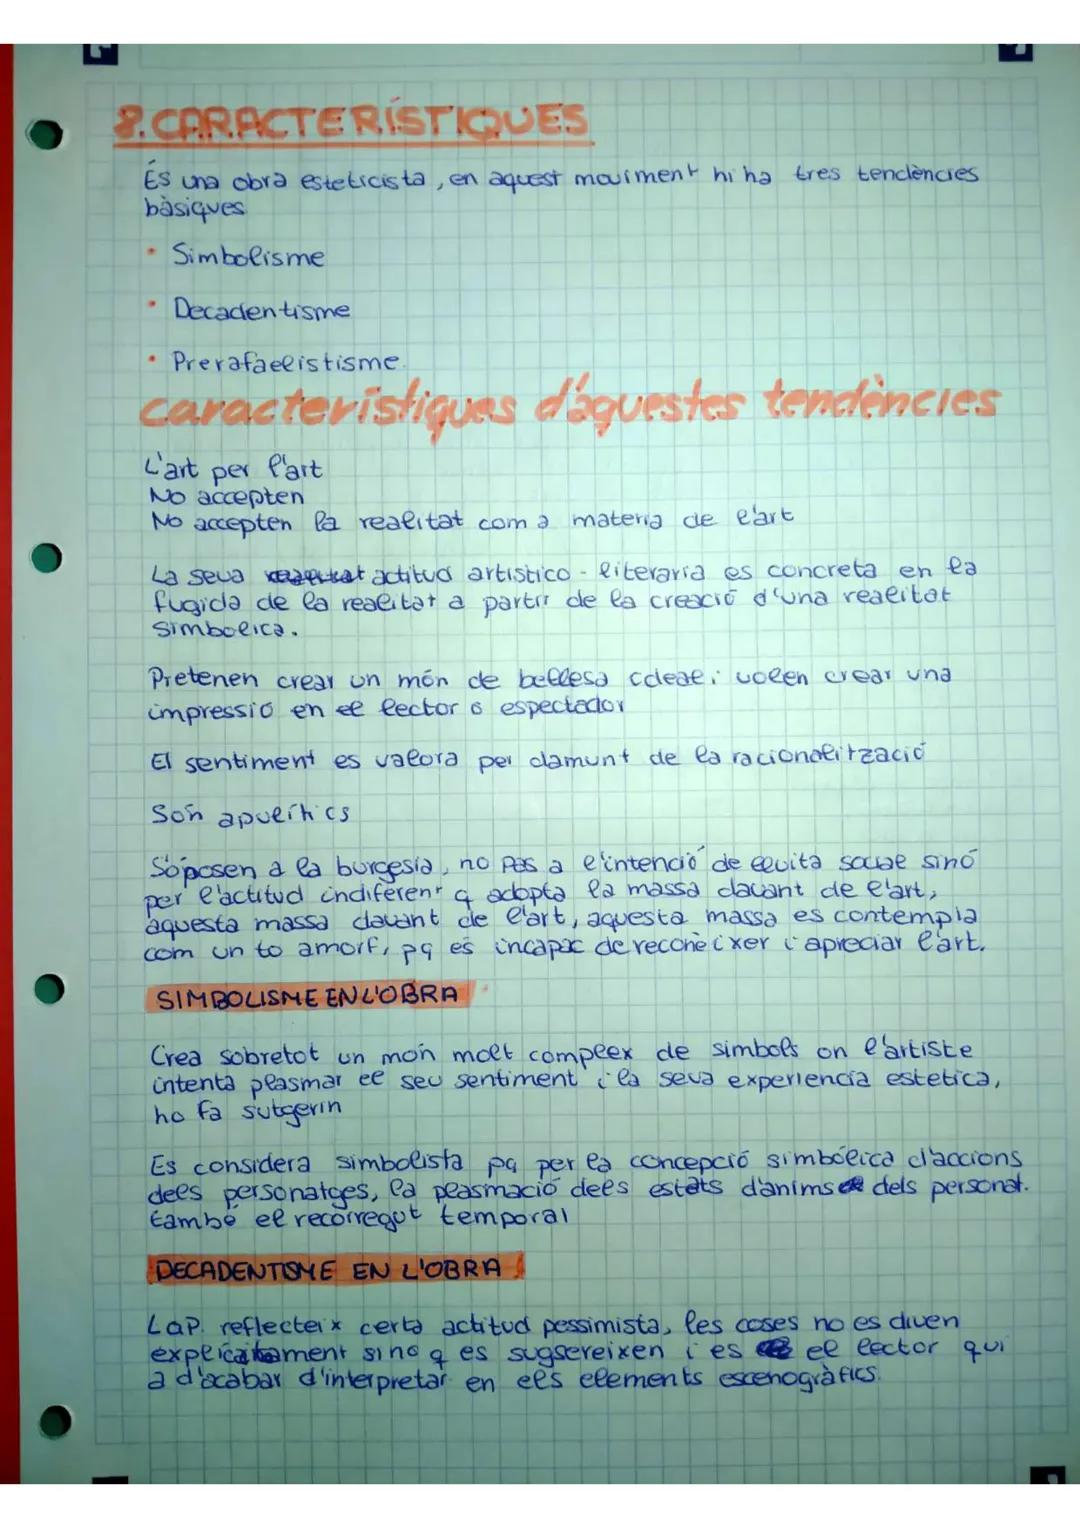 8. CARACTERÍSTIQUES
És una obra esteticista, en aquest moviment hi ha tres tendències
bàsiques
• Simbolisme
• Decadentisme
• Prerafaelistisme.
característiques d'aquestes tendències
L'art per l'art
No accepten
No accepten la realitat com a materia de l'art
La seva actitud artistico-literaria es concreta en la
fugida de la realitat a partir de la creació d'una realitat
simbolica.
Pretenen crear un món de bellesa ideal i volen crear una
impressió en el lector o espectador
El sentiment es valora per damunt de la racionalització
Són
S'oposen a la burgesia, no pas a l'intenció de lluita social sinó
per l'actitud indiferent q adopta la massa davant de l'art,
aquesta massa davant de l'art, aquesta massa es contempla
com un to amorf, pq és incapaç de reconèixer i apreciar l'art.
SIMBOLISME EN L'OBRA
Crea sobretot un món molt complex de simbols on l'artiste
intenta plasmar el seu sentiment i la seva experiencia estetica,
ho fa sutgerin
Es considera simbolista pq per la concepció simbólica d'accions
dels personatges, la plasmació dels estats d'anims dels personat.
també el recorregut temporal
DECADENTISME EN L'OBRA
LaP. reflecteix certa actitud pessimista, les coses no es diuen
explicitament sino q es sugsereixen i es el lector qui
a d'acabar d'interpretar en els elements escenogràfics.